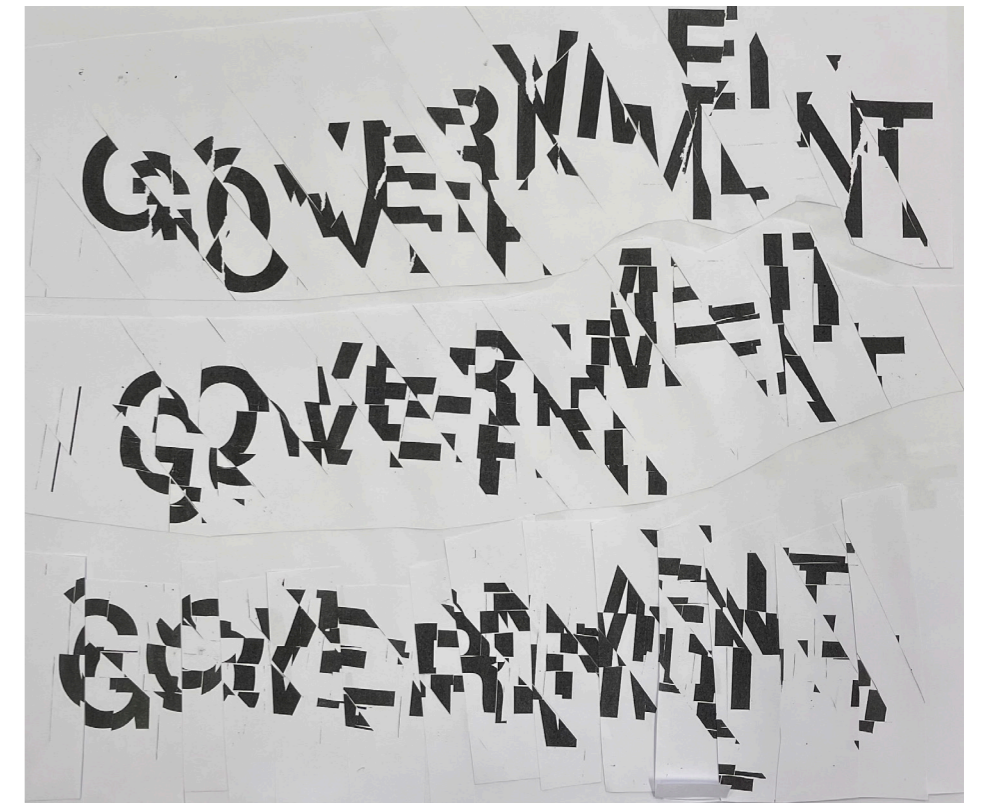 GOVERNMENT
GOVERNMENT
GOVERNMENT